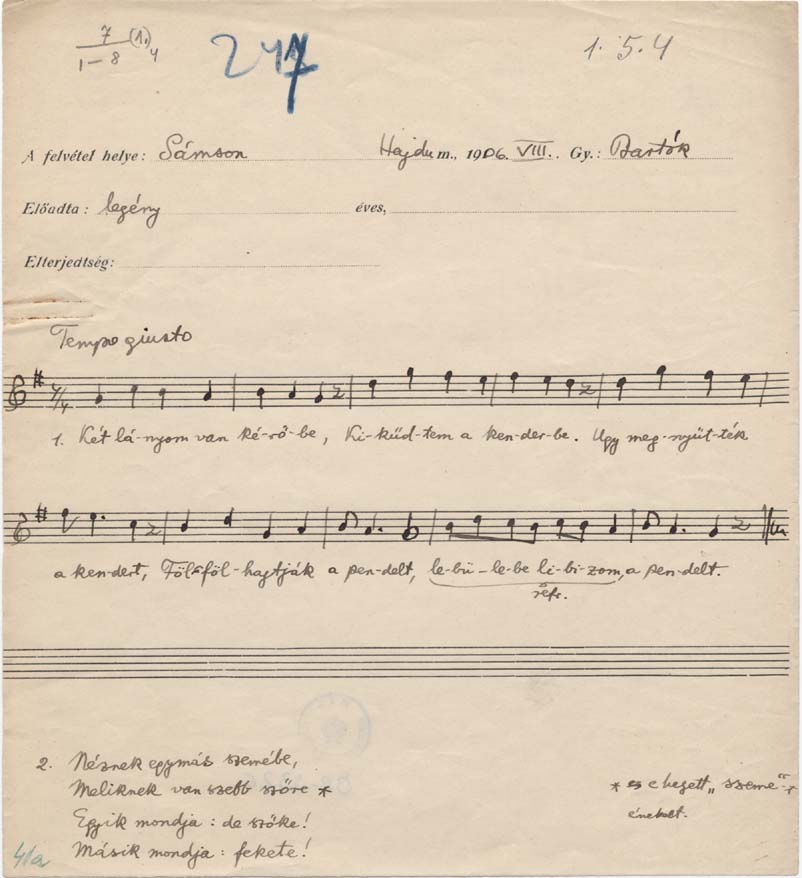 7 (1.) 4
1-8
247
1. 5. 4
A felvétel helye: Sámson Hajdu m., 1906. VIII. . Gy.: Bartók
Előadta: legény éves,
Elterjedtség:
Tempo giusto
1. Két lá-nyom van ké-rő-be, Ki-küd-tem a ken-der-be. Ugy meg-nyüt-ték
a ken-dert, Föl-föl-hajtják a pen-delt, le-bü-le-be li-bi-zom, a pen-delt.
refr.
2. Néznek egymás szemébe,
Meliknek van szebb szőre *
Egyik mondja: de szőke!
Másik mondja: fekete!
* s ehegett „szeme"-t
énekelt.
41a